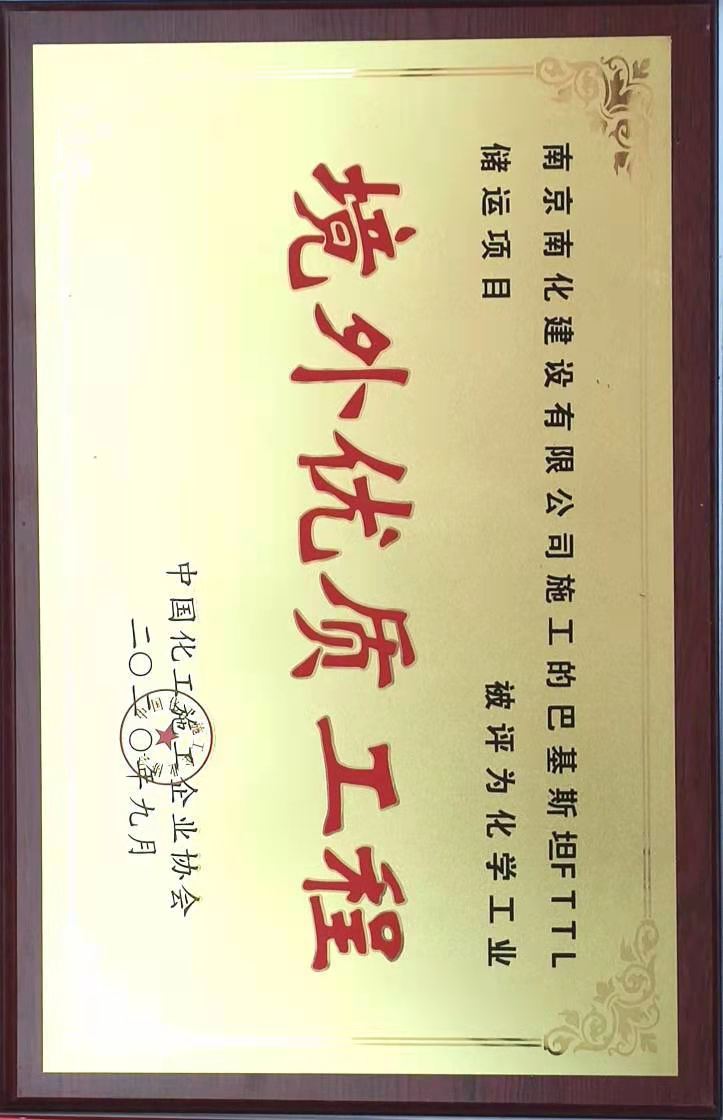 南京南化建设有限公司施工的巴基斯坦FTTL
储运项目 被评为化学工业
境外优质工程
中国化工施工企业协会
二〇一〇年九月